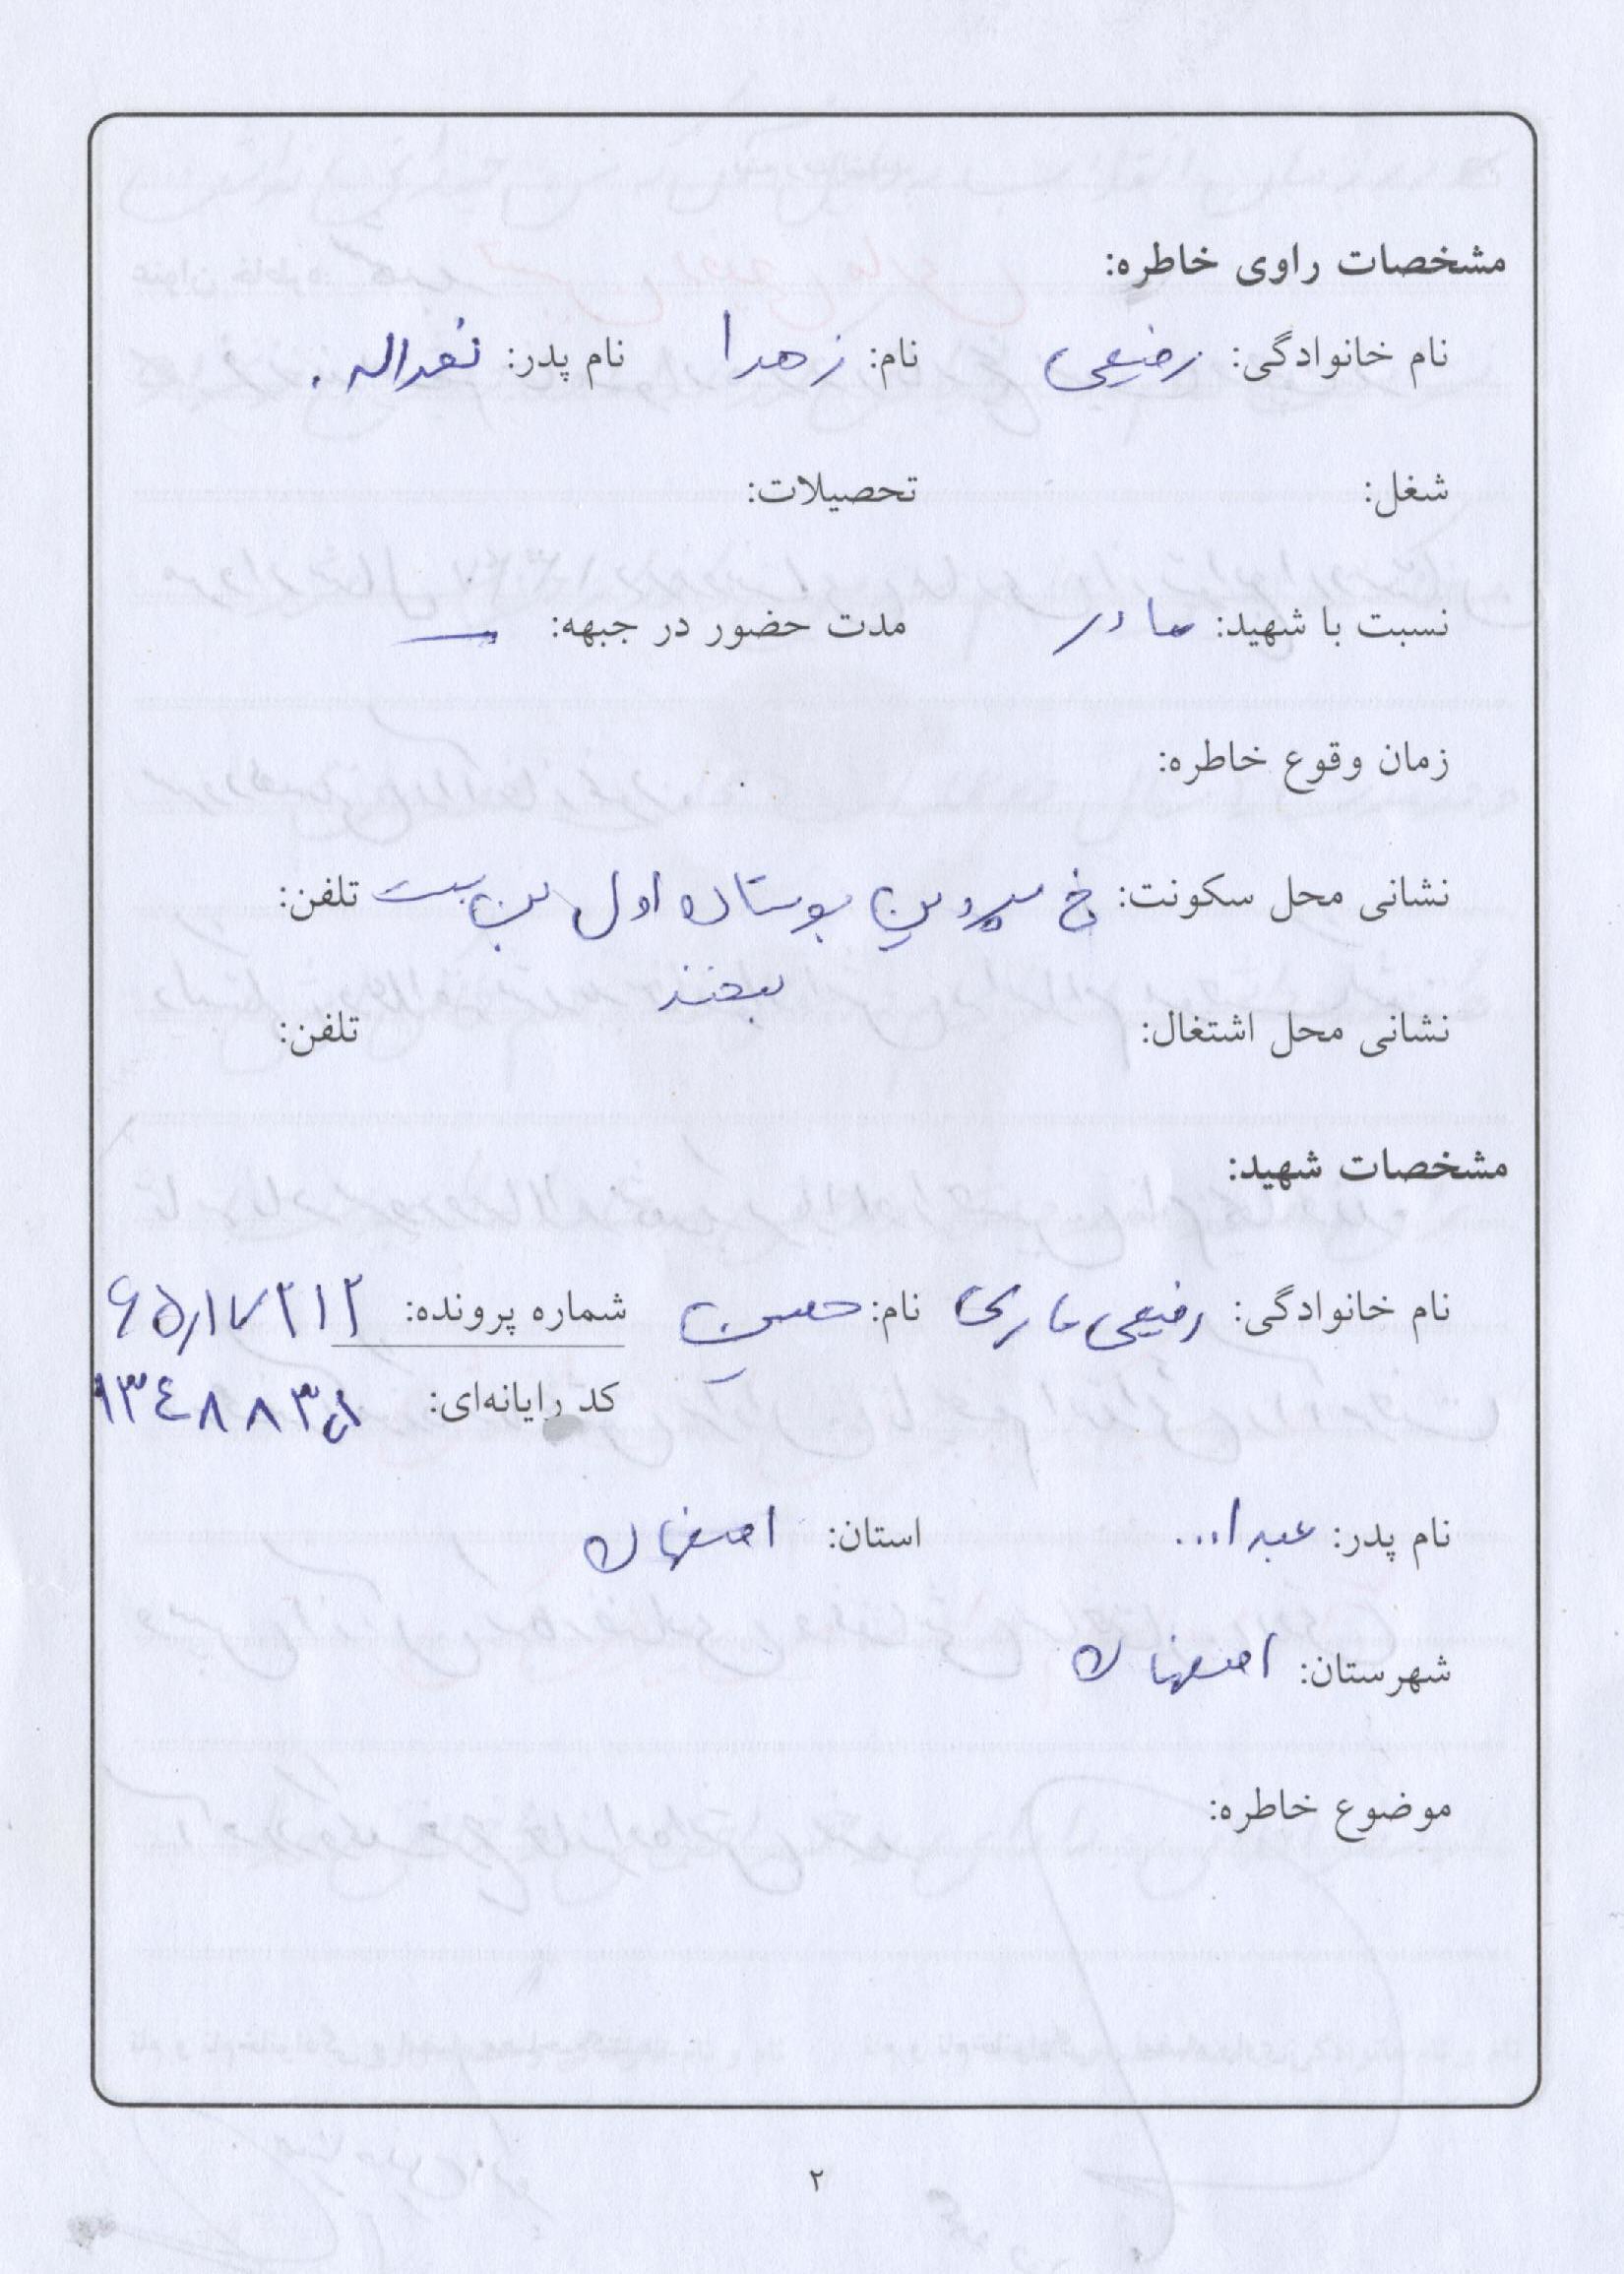 مشخصات راوی خاطره:
نام خانوادگی: رفیعی نام: زهرا نام پدر: نصراله.
شغل: تحصیلات:
نسبت با شهید: مادر مدت حضور در جبهه: ـ
زمان وقوع خاطره:
نشانی محل سکونت: خ پروین بوستان اول بن بست تلفن:
نشانی محل اشتغال: تلفن:
مشخصات شهید:
نام خانوادگی: رفیعی نام: حسین شماره پرونده:
کد رایانه‌ای:
نام پدر: عبدا... استان: اصفهان
شهرستان: اصفهان
موضوع خاطره:
۲